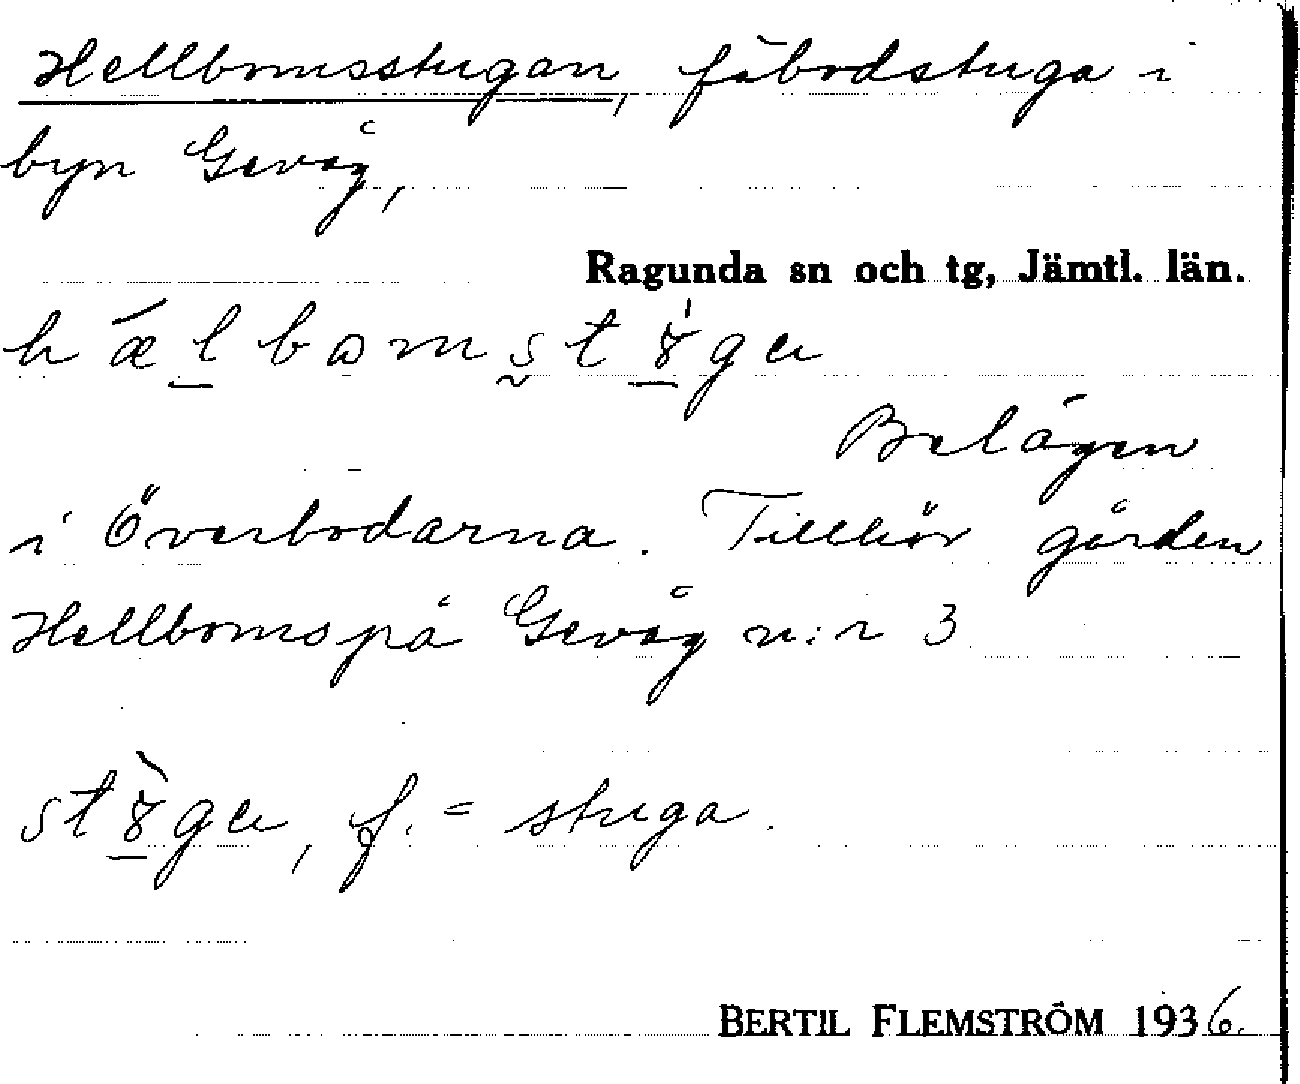 Hellbomsstugan, fäbodstuga i
byn Gevåg,
Ragunda sn och tg, Jämtl. län.
Belägen
i Överbodarna. Tillhör gården
Hellboms på Gevåg n:r 3
f. = stuga.
BERTIL FLEMSTRÖM 1936.